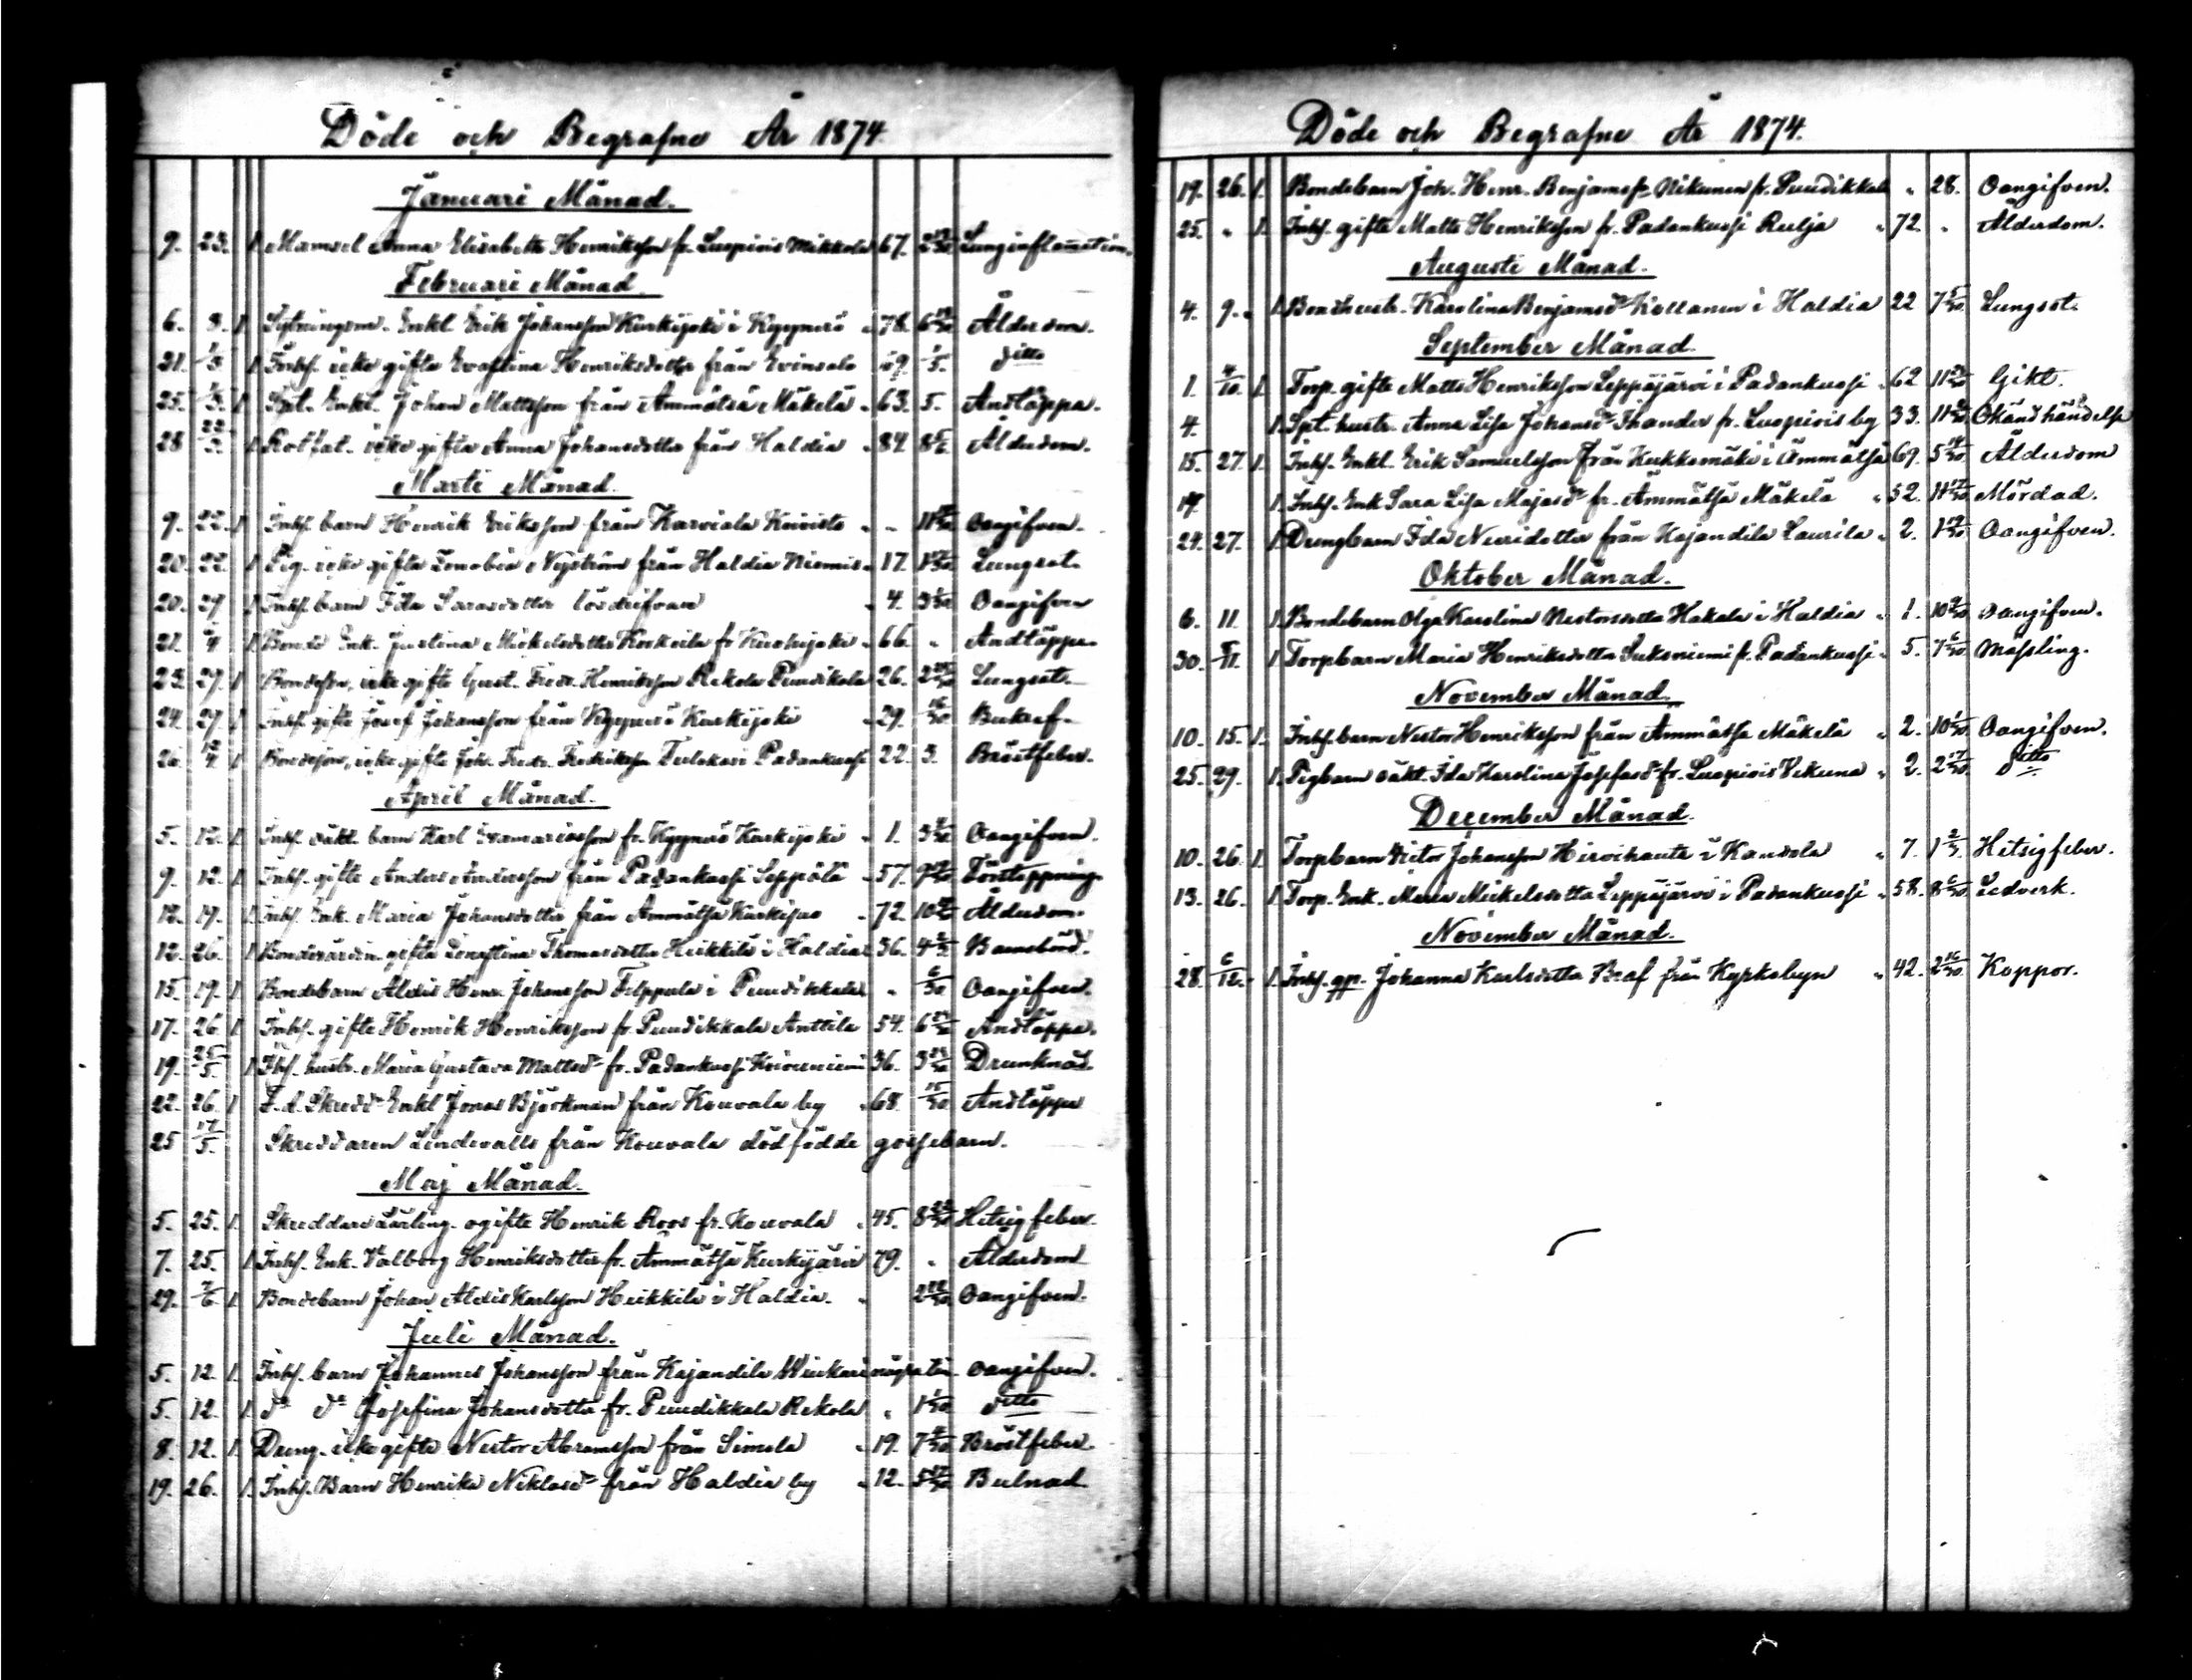 Döde och Begrafne År 1874.
Januari Månad.
9. 23. 1. Mamsel Anna Elisabeth Henriksson fr. Luopiois Mikkola 67. Lunginflamation.
Februari Månad.
6. 8. 1 Sytningsm. Enkl. Erik Johansson Kurkijoki i Kyynerö 78. Ålderdom.
21. 1/3 1 Inhs. icke gifta Evastina Henriksdotter från Evinsalo 69. 1/5. ditto
25. 1/3. 1 Spt. Enkl. Johan Mattsson från Ämmätsä Mäkelä 63. 5. Andtäppa.
28 22/3. 1 Rotfat. icke gifta Anna Johansdotter från Haldia 84. Ålderdom.
Marti Månad.
9. 22. 1 Inhs. barn Henrik Eriksson från Karviala Koivisto " - Oangifven.
20. 22. 1 Pig. icke gifta Zenobia Nyström från Haldia Niemis 17. Lungsot.
20. 29 1 Inhs. barn Ida Sarasdotter lösdrifvare 4. Oangifven
21. /4 1 Bonde Enk. Justina Mickelsdotter fr. 66. " Andtäppa.
23. 29. 1 Bondeson, icke gifte Gust. Fredr. Henriksson Rekola Puudikkala 26. Lungsot.
24. 29. 1 Inhs. gifte Josef Johansson från Kyynerö Kurkijoki 29. 16/30
/4 1 Bondeson, icke gifte Joh. Fredr. Fredriksson Padankusi 22. 3. Bröstfeber.
April Månad.
5. 12. 1 Inhs. oäkt. barn Karl fr. Kyynerö Kurkijoki 1. Oangifven.
9. 12. 1. Inhs. gifte Anders Andersson från Padankusi Seppälä 57. Förstoppning.
12. 19. 1 Inhs. Enk. Maria Johansdotter från Ämmätsä 72. Ålderdom.
12. 26. 1 Bondevärdin. gifta Thomasdotter Heikkilä i Haldia 36. Barnsbörd.
15. 19. 1 Bondebarn Aldis Henr. Johansson Filppula i Puudikkala " 6/30 Oangifven.
17. 26. 1 Inhs. gifte Henrik Henriksson fr. Puudikkala Anttila 54. Andtäppa.
19. 25/5. 1 Inhs. hustr. Maria Gustava Mattsdr fr. Padankusi Koivuniemi 36. Drunknad.
22. 26. 1 F. d. Skredd. Enkl. Jonas Björkman från Kouvala by 68. 15/30 Andtäppa
25 17/5. Skreddaren Lindevalls från Kouvala dödfödde gossebarn.
Maj Månad.
5. 25. 1. Skreddare Lärling. ogifte Henrik Roos fr. Kouvala 45. Hitsig feber.
7. 25. 1 Inhs. Enk. Valborg Henriksdotter fr. Ämmätsä Kurkijärvi 79. " Ålderdom
29. 7/6. 1. Bondebarn Johan Aldis Karlsson Heikkilä i Haldia. " Oangifven.
Juli Månad.
5. 12. 1. Inhs. barn Johannes Johansson från Kajandila några tim. oangifven.
5. 12. 1. do do Josefina Johansdotter fr. Puudikkala Rekola " 1 1/30 ditto
8. 12. 1. Dräng. icke gifte Nestor Abramsson från Simola 19. Bröstfeber.
19. 26. 1. Inhs. Barn Henrika Niklasdr från Haldia by 12. Bulnad.
Döde och Begrafne År 1874.
19. 26. 1. Bondebarn Joh. Henr. Benjamsson Nikunen fr. Puudikkala " 28. Oangifven.
25. " 1. Inhs. gifte Matts Henriksson fr. Padankusi Rulja " 72. " Ålderdom.
Augusti Månad.
4. 9. 1 Bondhustr. Karolina Benjamsdr i Haldia 22 7 5/30 Lungsot.
September Månad.
1. 4/10 1. Torp. gifte Matts Henriksson Leppäjärvi i Padankusi 62 Gikt.
4. 1 Spt. hustr. Anna Lisa Johansdr Thander fr. Luopiois by 33. Okänd händelse
15. 27. 1. Inhs. Enkl. Erik Samuelsson från Kukkomäki i Ämmätsä 69. 5 14/30 Ålderdom
19. 1. Inhs. Enk Sara Lisa Majasdr fr. Ämmätsä Mäkelä " 52. Mördad.
24. 27. 1. Drengbarn Ida från Kajandila Laurila " 2. Oangifven.
Oktober Månad.
6. 11. 1. Bondebarn Olga Karolina Nestorsdotter Hakala i Haldia " 1. Oangifven.
30. 8/11. 1. Torpbarn Maria Henriksdotter Suksiniemi fr. Padankusi " 5. 7 6/30 Mässling.
November Månad.
10. 15. 1. Inhs. barn Nestor Henriksson från Ämmätsä Mäkelä " 2. 10 1/30 Oangifven.
25. 29. 1. Pigbarn oäkt. Ida Karolina Josefasdr fr. Luopiois Vekuna " 2. 2 17/30 ditto
December Månad.
10. 26. 1. Torpbarn Victor Johansson Hirvihauta i " 7. Hitsig feber.
13. 26. 1. Torp. Enk. Maria Mickelsdotter Leppäjärvi i Padankusi " 58. 8 6/30 Ledverk.
November Månad.
28. 6/12. 1. Inhs. gp. Johanna Karlsdotter Braf från Kyrkobyn " 42. 2 16/30 Koppor.